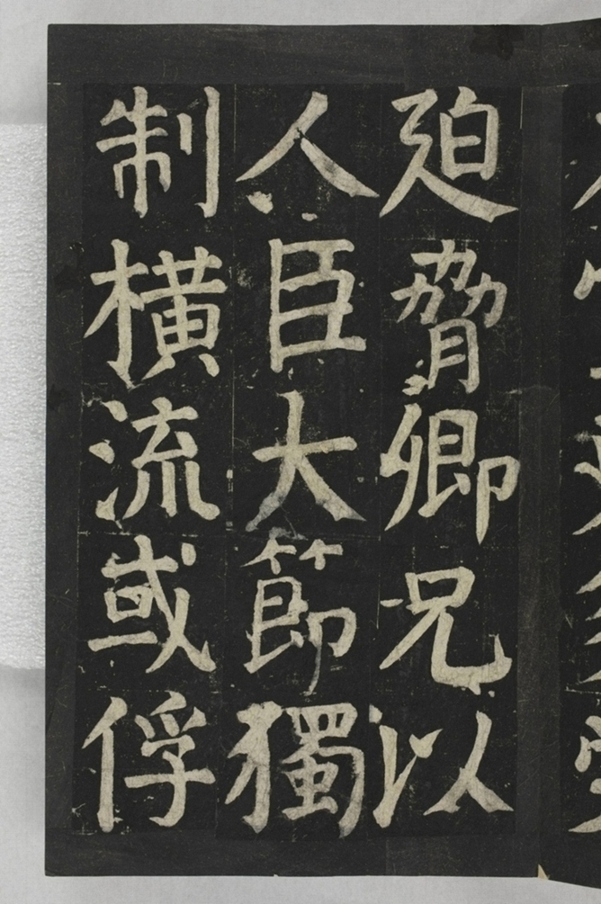 廹脅卿兄以
人臣大節獨
制橫流或俘